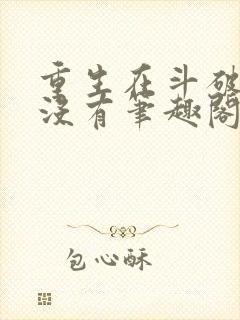 重生在斗破
没有笔趣阁
包心酥